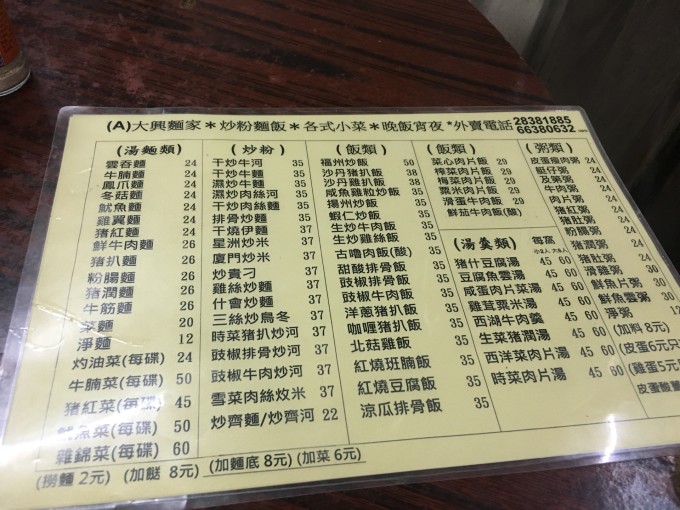 (A)大興麵家＊炒粉麵飯＊各式小菜＊晚飯宵夜*外賣電話 28381885
66380632
(湯麵類)
雲吞麵 24
牛腩麵 24
鳳爪麵 24
冬菇麵 24
魷魚麵 24
雞翼麵 24
豬紅麵 24
鮮牛肉麵 26
豬扒麵 26
粉腸麵 26
豬潤麵 26
牛筋麵 26
菜麵 20
淨麵 12
灼油菜(每碟) 24
牛腩菜(每碟) 50
豬紅菜(每碟) 45
魷魚菜(每碟) 50
雜錦菜(每碟) 60
(炒粉)
干炒牛河 35
干炒牛麵 35
濕炒牛河 35
濕炒肉絲河 35
干炒肉絲麵 35
排骨炒麵 35
干燒伊麵 35
星洲炒米 37
廈門炒米 37
炒貴刁 37
雞絲炒麵 37
什會炒麵 37
三絲炒烏冬 37
時菜豬扒炒河 37
豉椒排骨炒河 37
豉椒牛肉炒河 37
雪菜肉絲炆米 37
炒齊麵/炒齊河 22
(飯類)
福州炒飯 50
沙丹豬扒飯 38
沙丹雞扒飯 38
咸魚雞粒炒飯 38
揚州炒飯 35
蝦仁炒飯 35
生炒牛肉飯 35
生炒雞絲飯 35
古嚕肉飯(酸) 35
甜酸排骨飯 35
豉椒排骨飯 35
豉椒牛肉飯 35
洋蔥豬扒飯 35
咖喱豬扒飯 35
北菇雞飯 35
紅燒班腩飯 35
紅燒豆腐飯 35
涼瓜排骨飯 35
(飯類)
菜心肉片飯 29
榨菜肉片飯 29
梅菜肉片飯 29
粟米肉片飯 29
滑蛋牛肉飯 29
鮮茄牛肉飯(酸)
(湯羹類) 每窩
小2人 大4人
豬什豆腐湯 45 60
豆腐魚雲湯 45 60
咸蛋肉片菜湯 45 60
雞茸粟米湯 45 60
西湖牛肉羹 45 60
生菜豬潤湯 45 60
西洋菜肉片湯 45 60
時菜肉片湯 45 60
(粥類)
皮蛋瘦肉粥 24
艇仔粥 24
及第粥 24
牛肉粥 24
肉片粥 24
豬紅粥 24
豬肚粥 24
粉腸粥 24
豬潤粥 24
豬什粥 24
滑雞粥 30
鮮魚片粥 30
鮮魚雲粥 30
淨粥 12
(加料 8元)
(皮蛋6元只
(雞蛋5元
皮蛋酸薑
(撈麵 2元) (加餸 8元) (加麵底 8元) (加菜 6元)